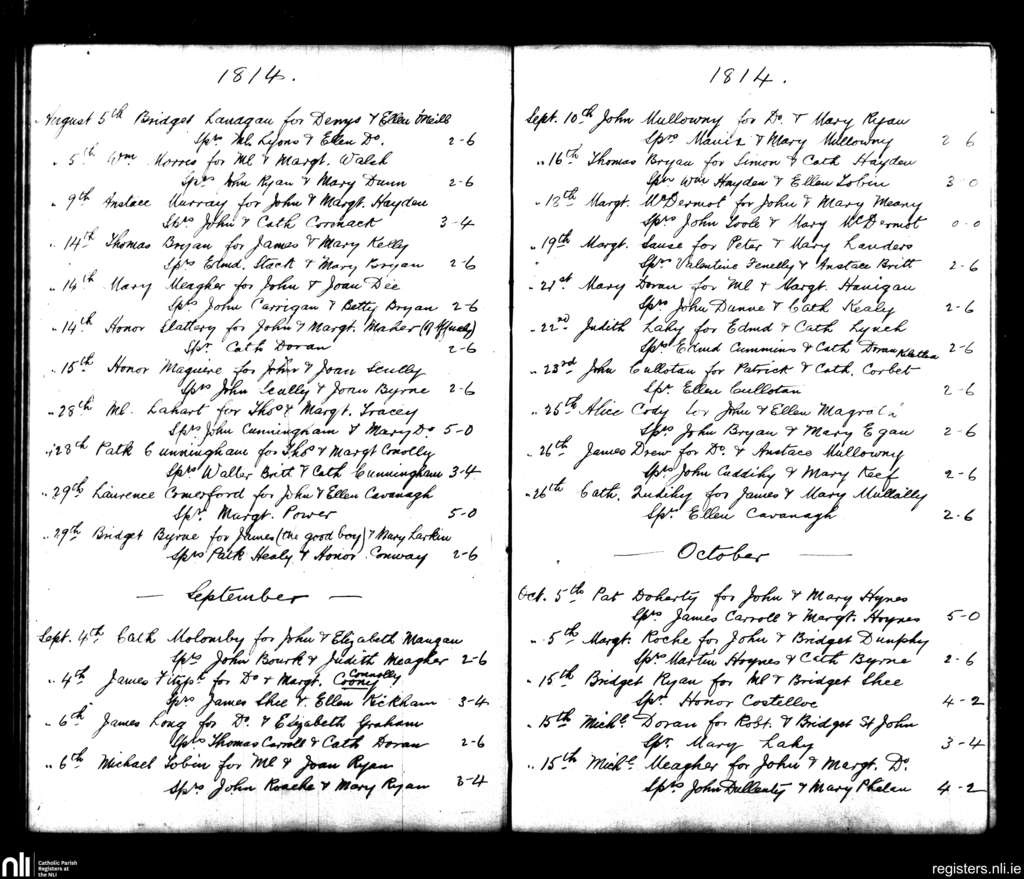 1814.
August 5th Bridget Lanagan for Denys & Ellen O'Neill
Sprs Ml. Lyons & Ellen Do. 2-6
" 5th Wm Morris for Ml & Margt. Walsh
Sprs John Ryan & Mary Dunn 2-6
" 9th Anstace Murray for John & Margt. Hayden
Sprs John & Cath Cormack 3-4
" 14th Thomas Bryan for James & Mary Kelly
Sprs Edmd. Stack & Mary Bryan 2-6
" 14th Mary Meagher for John & Joan Dee
Sprs John Carrigan & Betty Bryan 2-6
" 14th Honor Slattery for John & Margt. Maher
Spr. Cath Doran 2-6
" 15th Honor Maguire for John & Joan Scully
Sprs John Scully & Joan Byrne 2-6
" 28th Ml. Lahart for Thos & Margt. Tracey
Sprs John Cunningham & Mary Do 5-0
" 28th Patk Cunningham for Thos & Margt Conolly
Sprs Walter Britt & Cath Cunningham 3-4
" 29th Laurence Comerford for John & Ellen Cavanagh
Spr. Margt. Power 5-0
" 29th Bridget Byrne for James (the good boy) & Mary Larkin
Sprs Patk Healy & Honor Conway 2-6
— September —
Sept. 4th Cath Molomby for John & Elizabeth Mangan
Sprs John Bourk & Judith Meagher 2-6
" 4th James Fitzp. for Do & Margt. Coony Connolly
Sprs James Shee & Ellen Kickham 3-4
" 6th James Long for Do. & Elizabeth Graham
Sprs Thomas Carroll & Cath Doran 2-6
" 6th Michael Tobin for Ml & Joan Ryan
Sprs John Roache & Mary Ryan 3-4
1814.
Sept. 10th John Mullowny for Do. & Mary Ryan
Sprs & Mary Mullowny 2-6
" 16th Thomas Bryan for Simon & Cath Hayden
Sprs Wm Hayden & Ellen Tobin 3-0
" 18th Margt. McDermot for John & Mary Meany
Sprs John Toole & Mary McDermot 0-0
" 19th Margt. Sause for Peter & Mary Landers
Sprs Valentine Fenelly & Anstace Britt 2-6
" 21st Mary Doran for Ml & Margt. Hanigan
Sprs John Dunne & Cath Kealy 2-6
" 22nd Judith Lahy for Edmd & Cath Lynch
Sprs Edmd Cummins & Cath Doran 2-6
" 23rd John Cullotan for Patrick & Cath. Corbet
Spr. Ellen Cullotan 2-6
" 25th Alice Cody for John & Ellen Magrath
Sprs John Bryan & Mary Egan 2-6
" 26th James Drew for Do. & Anstace Mullowny
Sprs John Cuddihy & Mary Keef 2-6
" 26th Cath. Cudihy for James & Mary Mullally
Spr. Ellen Cavanagh 2-6
— October —
Oct. 5th Pat Doherty for John & Mary Hynes
Sprs James Carroll & Margt. Hoynes 5-0
" 5th Margt. Roche for John & Bridget Dunphy
Sprs Martin Hoynes & Cath Byrne 2-6
" 15th Bridget Ryan for Ml & Bridget Shee
Spr. Honor Costelloe 4-2
" 15th Michl. Doran for Robt. & Bridget St John
Spr. Mary Lahy 3-4
" 15th Michl. Meagher for John & Margt. Do.
Sprs John Dullenty & Mary Phelan 4-2
nli
Catholic Parish
Registers at
the NLI
registers.nli.ie